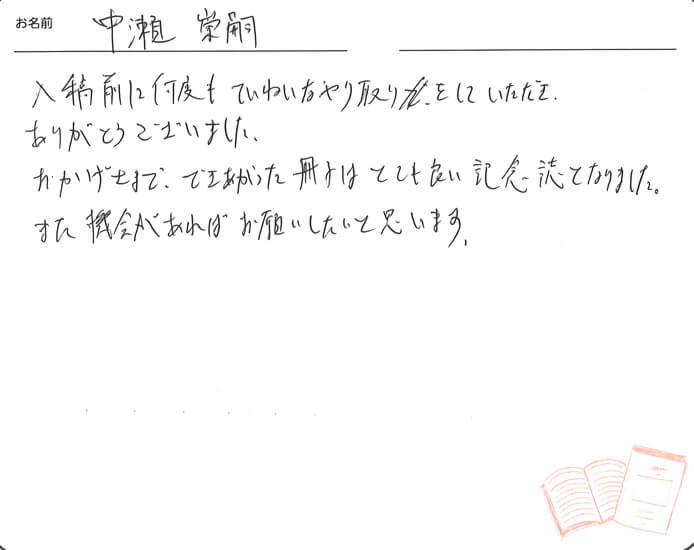 お名前 中瀬 崇嗣
入稿前に何度もていねいなやり取りをしていただき、
ありがとうございました、
おかげさまで、できあがった冊子はとても良い記念誌となりました。
また機会があればお願いしたいと思います、